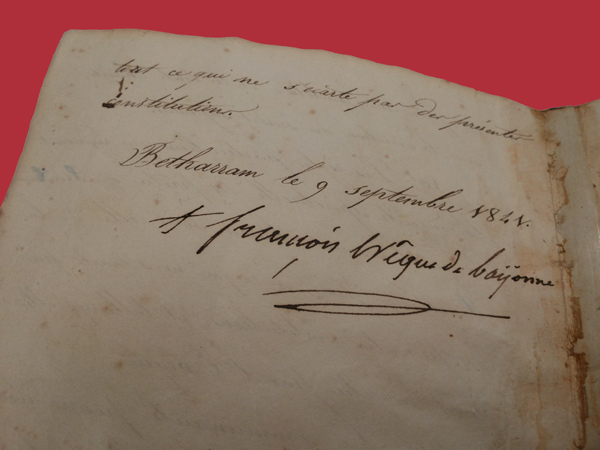 tout ce qui ne s'écarte pas des présentes
constitution.
Betharram le 9 septembre 1841.
+ françois Evêque de baÿonne